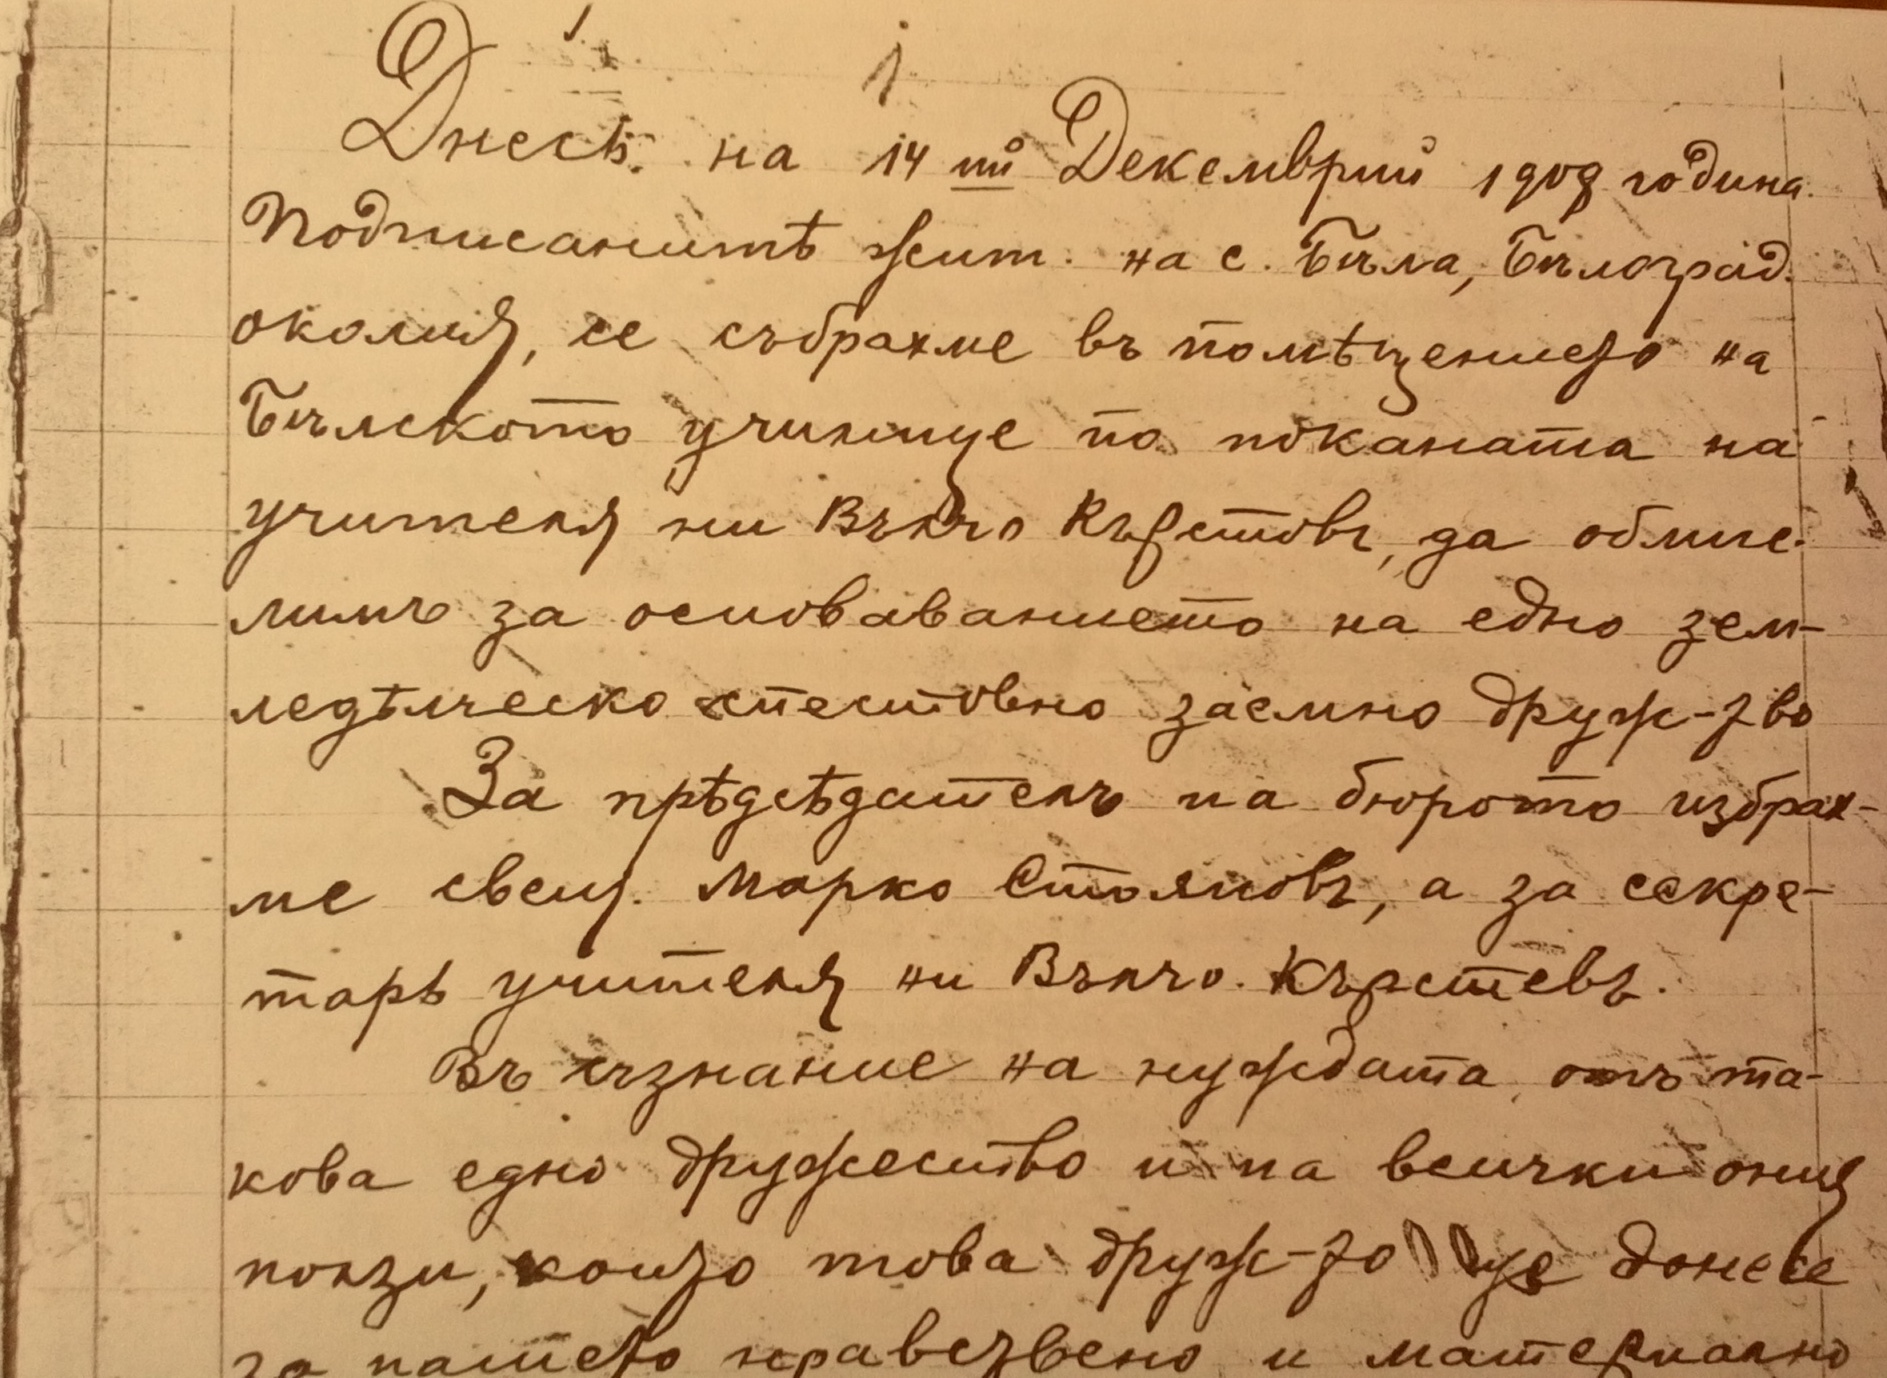 Днесь на 14 ий Декемврий 1908 година
Подписанитѣ жит. на с. Бѣла, Бѣлоград.
околия, се събрахме въ помѣщението на
Бѣлското училище по поканата на
учителя ни Вълчо Кърстовъ, да обмис-
лимъ за основаванието на едно зем-
ледѣлческо спестовно заемно друж-тво
За прѣдсѣдатель на бюрото избрах-
ме свещ. Марко Стояновъ, а за секре-
тарь учителя ни Вълчо Кърстевъ.
Въ съзнание на нуждата отъ та-
кова едно дружество и на всички ония
ползи, които това друж-то ще донесе
за нашето нравствено и материално